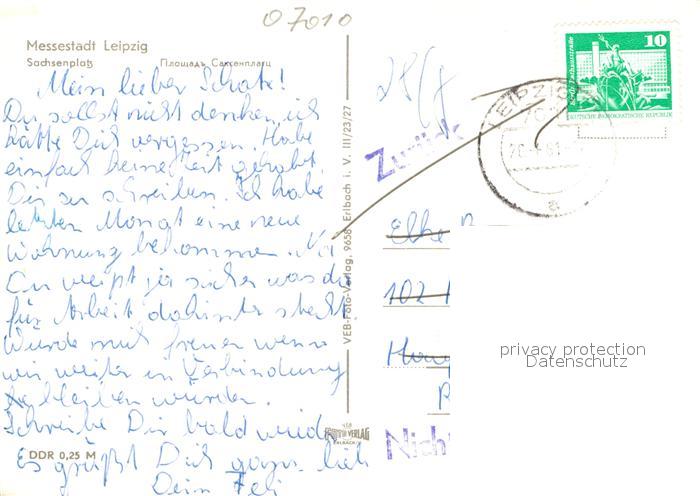 07010
Messestadt Leipzig
Sachsenplatz Площадь Саксенплатц
Mein lieber Schatz!
Du sollst nicht denken, ich
hätte Dich vergessen. Habe
einfach keine Zeit gehabt,
Dir zu schreiben. Ich habe
letzten Monat eine neue
Wohnung bekommen. Na
Du weißt ja sicher was da
für Arbeit dahinter steckt.
Würde mich freuen wenn
wir weiter in Verbindung
bleiben würden.
Schreibe Dir bald wieder
Es grüßt Dich ganz lieb
Dein
DDR 0,25 M
VEB-Foto-Verlag, 9658 Erlbach i. V. III/23/27
FOTO VERLAG
ERLBACH
Zurück
10
DEUTSCHE DEMOKRATISCHE REPUBLIK
LEIPZIG
Elke
102
Nicht
privacy protection
Datenschutz